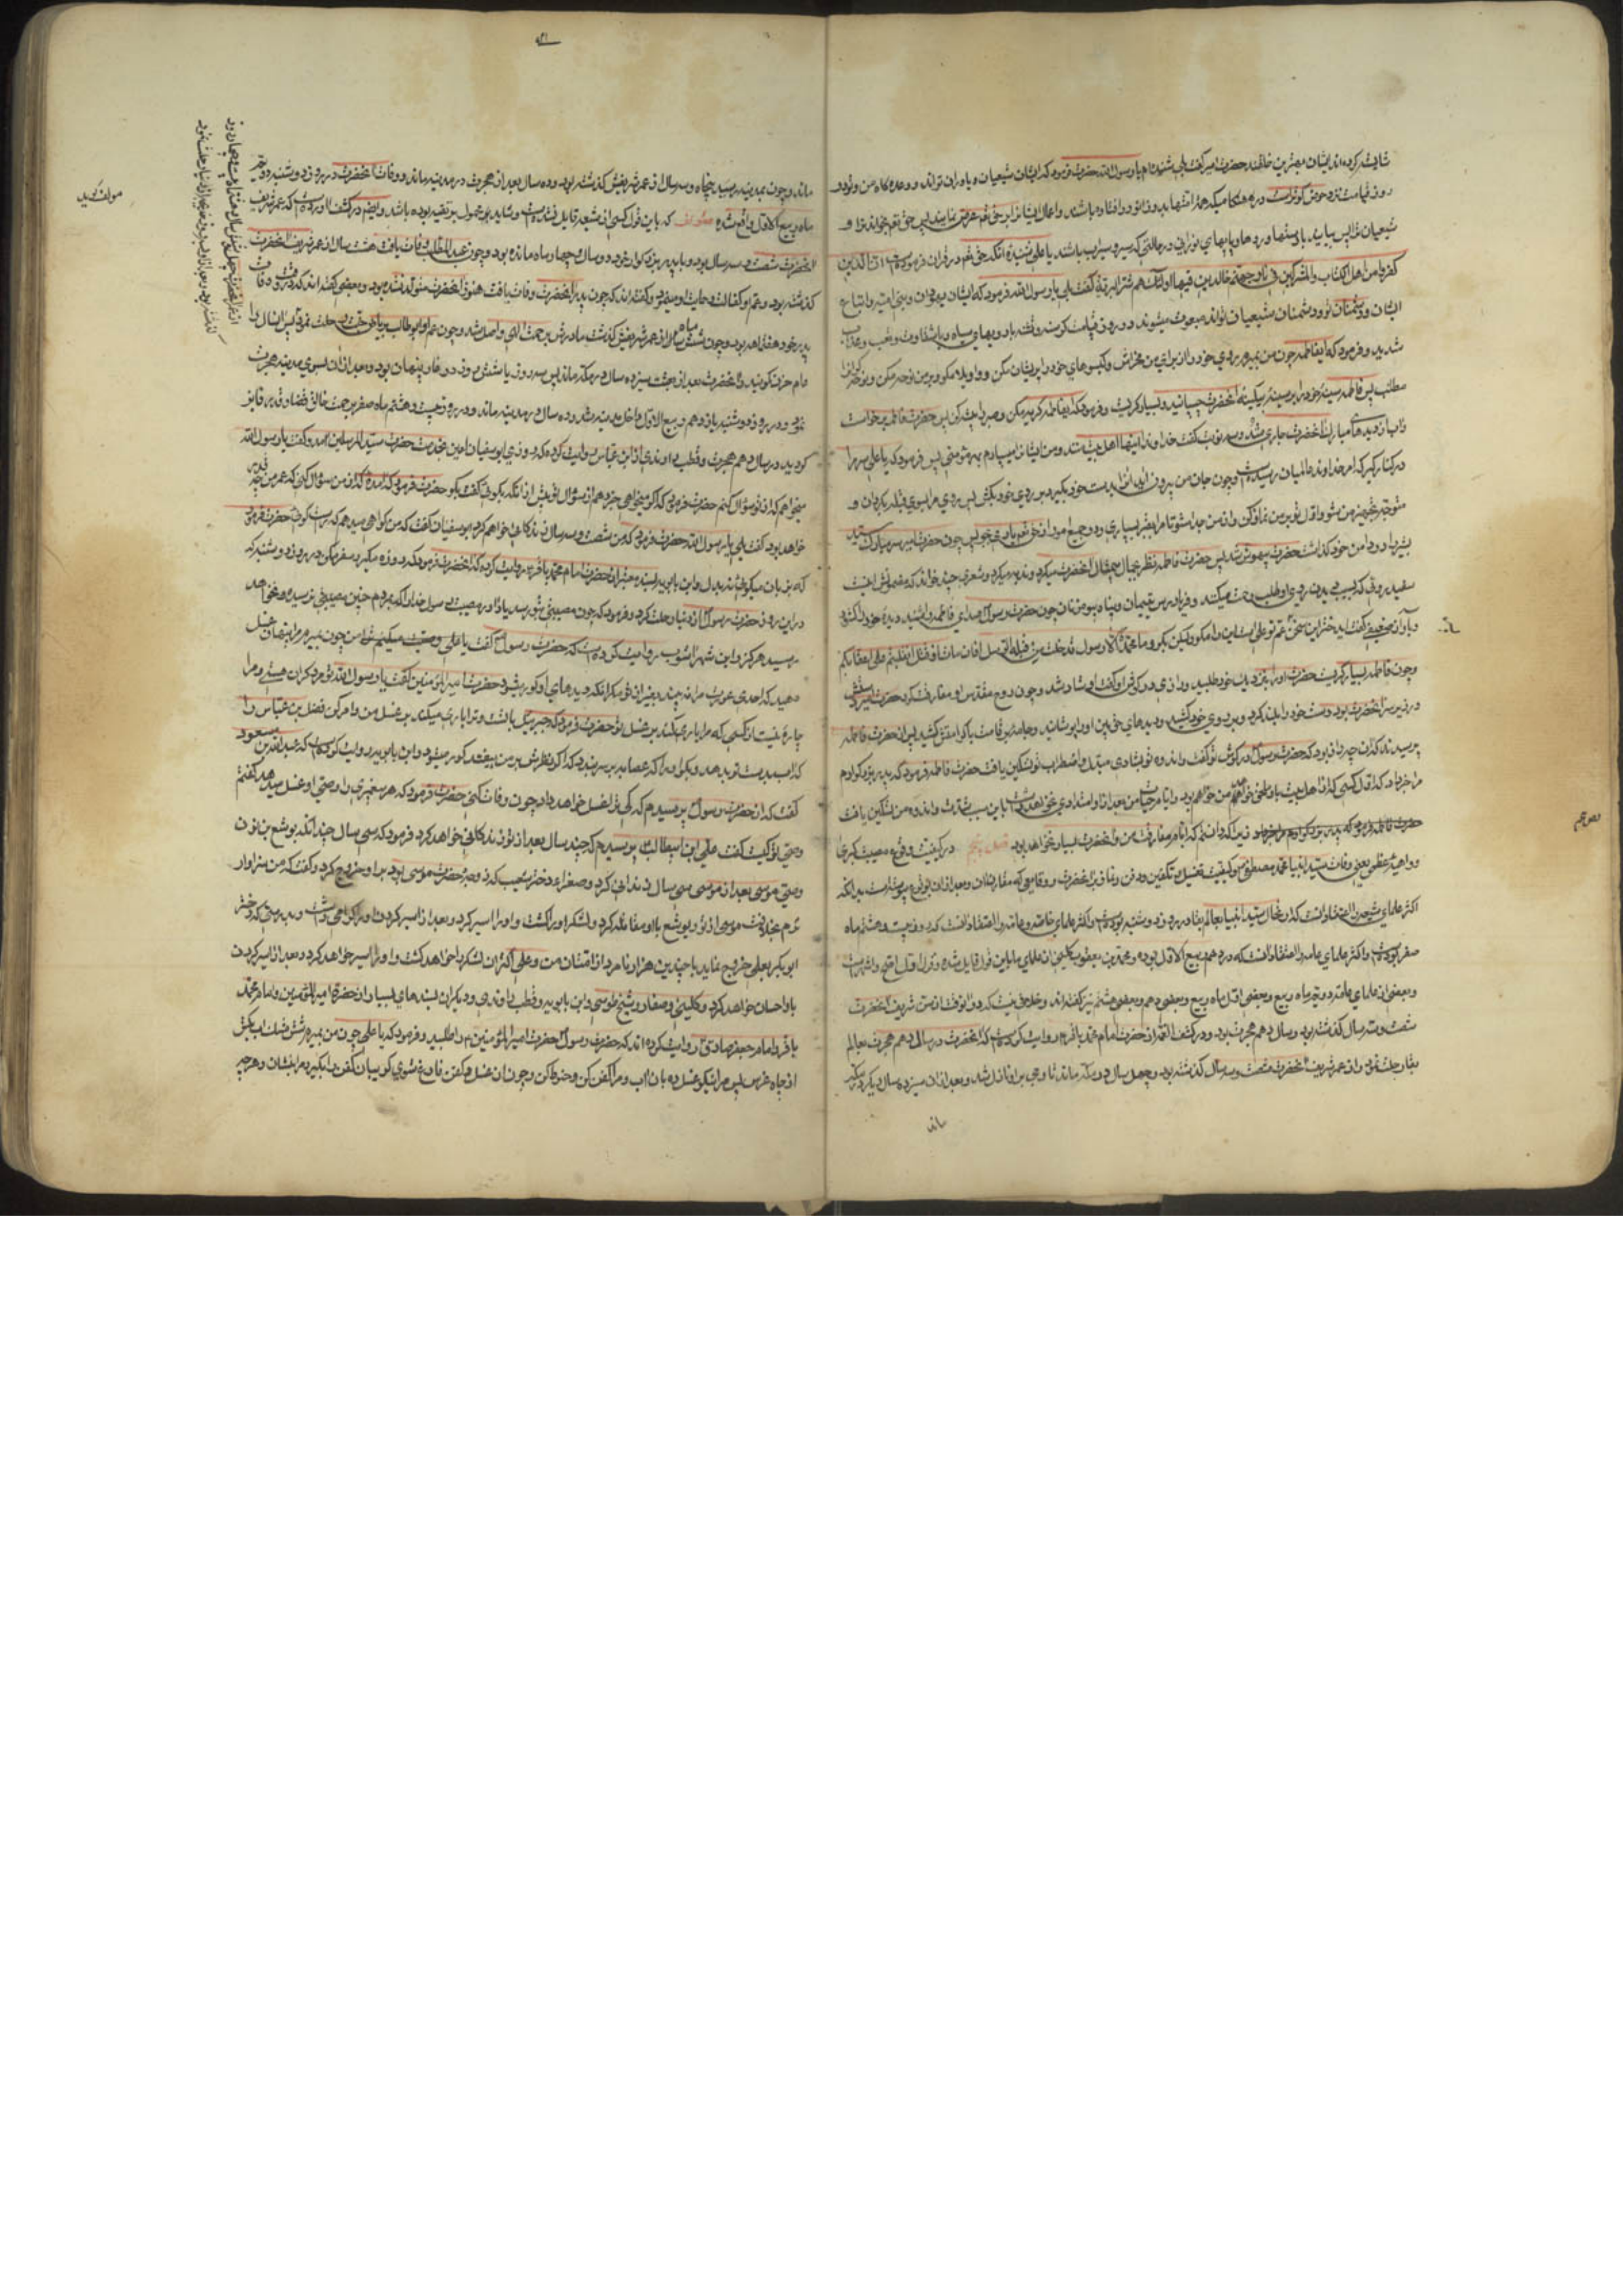 شایسته کرده‌اند ایشان بهترین خلقند حضرت امیر گفت بلی شنیده‌ام یا رسول الله حضرت فرمود که ایشان شیعیان و یاوران تواند و وعده‌گاه من و تو در
روز قیامت نزد حوض کوثر است در هنگامیکه همه امتها بدو زانو درافتاده باشند و
شیعیان ترا پس بیایید با دستها و روها و پایهای نورانی در حالتی که سیر و سیراب باشند یا علی نشنیده آنکه حق تعالی در قرآن فرموده است ان الذین
کفروا من اهل الکتاب والمشرکین فی نار جهنم خالدین فیها اولئک هم شر البریه گفت بلی یا رسول الله فرمود که ایشان یهودان و بنی امیه و اتباع
ایشان و دشمنان تو و دشمنان شیعیان تواند مبعوث میشوند در روز قیامت گرسنه و تشنه با رویهای سیاه و با شقاوت و تعب و عذاب
شدید و فرمود که ایفاطمه چون من بمیرم روی خود را از برای من مخراش و گیسوهای خود را پریشان مکن و واویلا مگو و بر من نوحه مکن و نوحه‌گران را
مطلب پس فاطمه سینه خود را بر سینه بیکینه آنحضرت چسبانید و بسیار گریست و فرمود که ایفاطمه گریه مکن و صبر را پیشه کن پس حضرت فاطمه برخاست
و آب از دیدهای مبارک آنحضرت جاری شد و سه نوبت گفت خداوندا اینها اهل بیت منند و من ایشانرا میسپارم بهر مؤمنی پس فرمود که یا علی سر مرا
در کنار گیر که امر خداوند عالمیان رسیده است و چون جان من بیرون آید آنرا بدست خود بگیر و بر روی خود بکش پس روی مرا بسوی قبله بگردان و
متوجه تجهیز من شو و اول تو بر من نماز کن و از من جدا مشو تا مرا بقبر بسپاری و در جمیع امور از حق تعالی یاری بجو پس چون حضرت امیر سر مبارک سید
بشر را در دامن خود گذاشت حضرت بیهوش شد پس حضرت فاطمه نظر بجمال بیمثال آنحضرت میکرد و ندبه میکرد و شعری چند خواند که مضمونش اینست
سفید روئی که ببرکت روی او طلب رحمت میکنند و فریادرس یتیمان و پناه بیوه زنان چون حضرت رسول صدای فاطمه را شنید دیده خود را گشود
و بآواز ضعیفی گفت ایدختر این سخن عم تو ابوطالب است این را مگو ولیکن بگو وما محمد الا رسول قد خلت من قبله الرسل افان مات او قتل انقلبتم علی اعقابکم
چون فاطمه بسیار گریست حضرت او را بنزدیک خود طلبید و رازی در گوش او گفت او شاد شد و چون روح مقدس او مفارقت کرد حضرت امیر دستش
در زیر سر آنحضرت بود دست خود را بلند کرد و بر روی خود کشید و دیدهای حق بین او را پوشانید و جامه بر قامت باکرامتش کشید پس از حضرت فاطمه
پرسیدند که آن چه راز بود که حضرت رسول در گوش تو گفت و اندوه تو بشادی مبدل و اضطراب تو تسکین یافت حضرت فاطمه فرمود که پدر بزرگوارم
مرا خبر داد که اول کسی که از اهل بیت باو ملحق خواهد شد من خواهم بود و ایام حیات من بعد از او امتدادی نخواهد داشت باین سبب شدت و اندوه من تسکین یافت
فصل پنجم در کیفیت وقوع مصیبت کبری
و داهیه عظمی یعنی وفات سید انبیا محمد مصطفی و کیفیت تغسیل و تکفین و دفن و نماز بر آنحضرت و وقایعی که مقارن آن و بعد از آن بوقوع پیوسته است بدانکه
اکثر علمای شیعه را اعتقاد آنست که ارتحال سید انبیا بعالم بقا در روز دوشنبه بوده است و اکثر علمای خاصه و عامه را اعتقاد آنست که در روز بیست و هشتم ماه
صفر بوده است و اکثر علمای عامه را اعتقاد آنست که دوازدهم ربیع الاول بوده و محمد بن یعقوب کلینی از علمای ما باین قول قایل شده و قول اول اصح و اشهر است
و بعضی از علمای عامه دویم ماه ربیع و بعضی اول ماه ربیع و بعضی دهم و بعضی هشتم نیز گفته‌اند و خلافی نیست که در آنوقت از سن شریف آنحضرت
شصت و سه سال گذشته بود و سال دهم هجرت بود و در کشف الغمه از حضرت امام محمد باقر ع روایت کرده است که آنحضرت در سال دهم هجرت بعالم
بقا رحلت نمود و از عمر شریف آنحضرت شصت و سه سال گذشته بود و چهل سال در مکه ماند تا وحی بر او نازل شد و بعد از آن سیزده سال دیگر در مکه
ماند
ماند و چون بمدینه رسید پنجاه و سه سال از عمر شریفش گذشته بود و ده سال بعد از هجرت در مدینه ماند و وفات آنحضرت در روز دوشنبه دویم
ماه ربیع الاول واقع شد مؤلف گوید که باین قول کسی از شیعه قایل نشده است و شاید محمول بر تقیه بوده باشد و ایضا در کشف آورده است که عمر شریف
آنحضرت شصت و سه سال بود و با پدر بزرگوار خود دو سال و چهار ماه مانده بود و چون عبدالمطلب وفات یافت هشت سال از عمر شریف آنحضرت
گذشته بود و عم او کفالت و حمایت او مینمود و گفته‌اند که چون پدر آنحضرت وفات یافت هنوز آنحضرت متولد نشده بود و بعضی گفته‌اند که در وقت وفات
پدر خود هفت ماهه بود و چون شش ساله از عمر شریفش گذشت مادرش برحمت الهی واصل شد و چون عم او ابوطالب بریاض جنت رحلت نمود پس آنسال را
عام حزن گویند و آنحضرت بعد از بعثت سیزده سال در مکه ماند پس سه روز یا شش روز در غار پنهان بود و بعد از آن بسوی مدینه هجرت
نمود و در روز دوشنبه یازدهم ربیع الاول داخل مدینه شد و ده سال در مدینه ماند و در روز بیست و هشتم ماه صفر برحمت خالق فایز
گردید در سال دهم هجرت و قطب راوندی از ابن عباس روایت کرده که روزی ابوسفیان بخدمت حضرت سید المرسلین آمد و گفت یا رسول الله
میخواهم که از تو سؤال کنم حضرت فرمود که اگر میخواهی خبر دهم از سؤال تو پیش از آنکه بگوئی گفت بگو حضرت فرمود که آمده که از من سؤال کنی که عمر من چه قدر
خواهد بود گفت بلی یا رسول الله حضرت فرمود که من شصت و سه سال زندگانی خواهم کرد ابوسفیان گفت که من گواهی میدهم که راست گوئی حضرت فرمود
که بزبان میگوئی نه بدل و ابن بابویه بسند معتبر از حضرت امام محمد باقر روایت کرده که آنحضرت فرمود که روزه مگیر و سفر مکن در روز دوشنبه که
در این روز حضرت رسول از دنیا رحلت کرد و فرمود که چون مصیبتی بتو رسد یاد آور مصیبت رسول خدا را که بمردم چنین مصیبتی نرسیده و نخواهد
رسید هرگز و ابن شهرآشوب روایت کرده است که حضرت رسول گفت یا علی وصیت میکنم ترا چون بمیرم مرا بتنهائی غسل
دهید که احدی عورت مرا نه بیند بغیر از تو مگر آنکه دیدهای او کور شود حضرت امیر المؤمنین گفت یا رسول الله تو مرد گران هستی و مرا
چاره نیست از کسی که مرا یاری کند بر غسل تو حضرت فرمود که جبرئیل با تست و ترا یاری میکند بر غسل من و امر کن فضل بن عباس را
که آب بدست تو بدهد و بگو او را که عصابه بر سر بندد که اگر نظرش بر من بیفتد کور میشود و ابن بابویه روایت کرده است که عبدالله بن مسعود
گفت که از حضرت رسول پرسیدم که کی ترا غسل خواهد داد چون وفات کنی حضرت فرمود که هر پیغمبری را وصی او غسل میدهد گفتم
وصی تو کیست گفت علی ابن ابیطالب پرسیدم که چند سال بعد از تو زندگانی خواهد کرد فرمود که سی سال چنانکه یوشع بن نون
وصی موسی بعد از موسی سی سال زندگانی کرد و صفراء دختر شعیب که زوجه حضرت موسی بود بر او خروج کرد و گفت که من سزاوار
ترم بخلافت موسی از تو و یوشع با او مقاتله کرد و لشکر او را کشت و او را اسیر کرد و بعد از اسیر کردن او را گرامی داشت و بدرستی که دختر
ابوبکر بعلی خروج نماید با چندین هزار نامرد از امتان من و علی اکثر آن لشکر را خواهد کشت و او را اسیر خواهد کرد و بعد از اسیر کردن
با او احسان خواهد کرد و کلینی و صفار و شیخ طوسی و ابن بابویه و قطب راوندی و دیگران بسندهای بسیار از حضرت امیر المؤمنین و امام محمد
باقر و امام جعفر صادق روایت کرده‌اند که حضرت رسول حضرت امیر المؤمنین را طلبید و فرمود که یا علی چون من بمیرم شش مشک آب بکش
از چاه غرس پس مرا نیکو غسل ده بآن آب و مرا کفن کن و حنوط کن و چون از غسل و کفن فارغ شوی گریبان کفن را بگیر و مرا بنشان و هر چه
مولف گوید